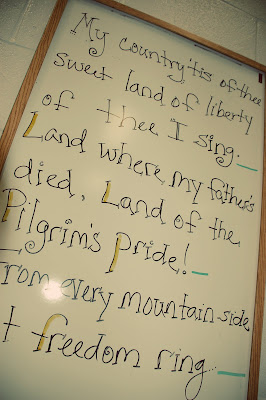 My country 'tis of thee
sweet land of liberty
of thee I sing.
Land where my father's
died, Land of the
Pilgrim's pride!
From every mountain side
t freedom ring.